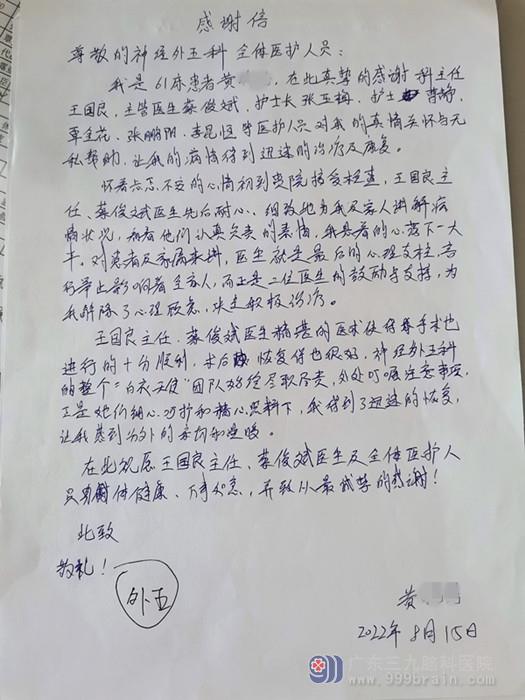 感谢信
尊敬的神经外五科全体医护人员:
我是61床患者黄 ,在此真挚的感谢科主任
王国良,主管医生蔡俊斌,护士长张玉梅,护士 曹静,
覃兰花、张鹏阳、李昆恒等医护人员对我的真情关怀与无
私帮助,让我的病情得到迅速的治疗及康复。
怀着忐忑不安的心情初到贵院接受检查,王国良主
任、蔡俊斌医生先后耐心、细致地为我及家人讲解病
情状况,和看他们认真负责的表情,我悬着的心落下一大
半。对患者及家属来讲,医生就是最后的心理支柱,言
行举止影响着全家人,而正是二位医生的鼓励与支持,为
我解除了心理顾虑,决定积极治疗。
王国良主任、蔡俊斌医生精湛的医术使得 手术也
进行的十分顺利,术后 恢复得也很好,神经外五科
的整个“白衣天使”团队始终尽职尽责,处处叮嘱注意事项,
正是她们细心呵护和精心照料下,我得到了迅速的恢复,
让我感到另外的亲切和温暖。
在此祝愿王国良主任、蔡俊斌医生及全体医护人
员身体健康、万事如意,并致以最诚挚的感谢!
此致
敬礼!
外五
黄
2022年8月15日
广东三九脑科医院
www.999brain.com